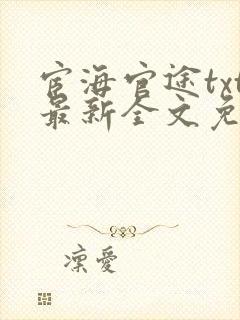 宦海官途txt
最新全文免
凛爱